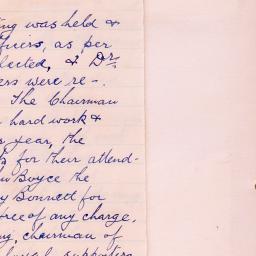 ing was held &
fficers, as per
elected, & Drs.
ers were re-.
The Chairman
hard work &
s year, the
s for their attend-
Boyce the
y Bonnett for
of any charge.
ng, chairman of
loyal supporters